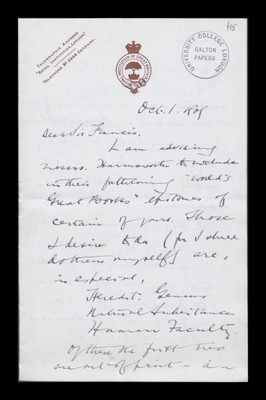 TELEGRAPHIC ADDRESS
"ROYAL INSTITUTION, LONDON."
TELEPHONE Nº 2669 GERRARD.
UNIVERSITY COLLEGE LONDON
GALTON
PAPERS
Oct. 1. 1909
Dear Sir Francis,
I am advising
Messrs. Harmsworth to include
in their forthcoming "World's
Great Books" epitomes of
certain of yours. Those
I desire to do (for I should
do them myself) are,
in especial,
Heredit. Genius
Natural Inheritance
Human Faculty.
Of these the first two
are out of print — an